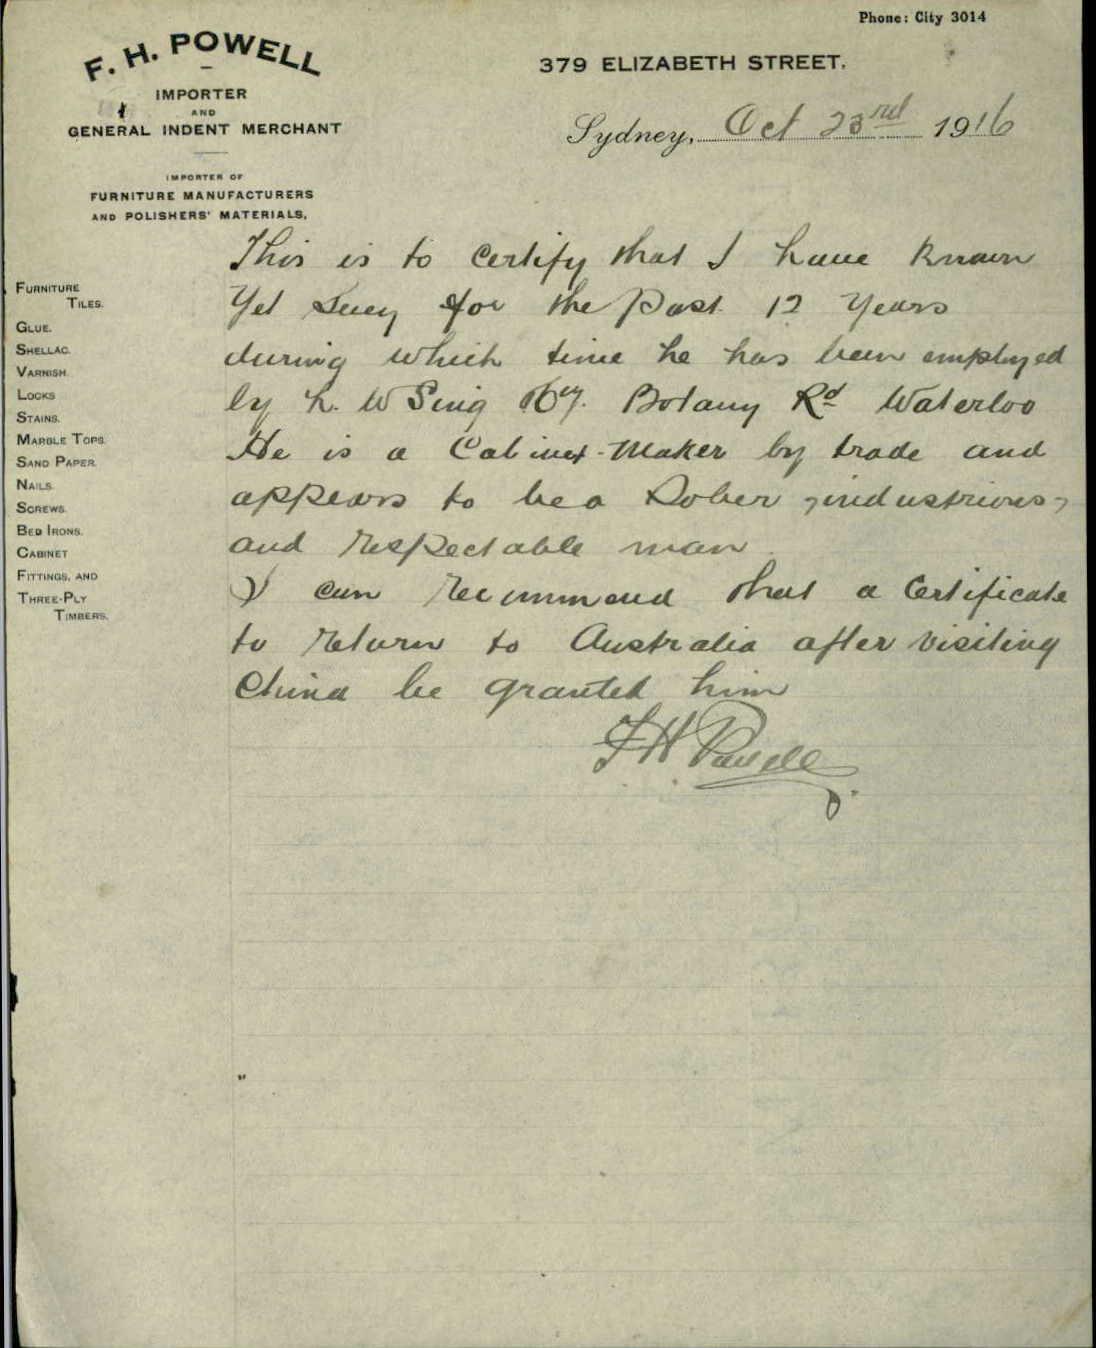 Phone: City 3014
F. H. POWELL
IMPORTER
AND
GENERAL INDENT MERCHANT
379 ELIZABETH STREET.
Sydney, Oct 23rd 1916
IMPORTER OF
FURNITURE MANUFACTURERS
AND POLISHERS' MATERIALS,
FURNITURE
TILES.
GLUE.
SHELLAC.
VARNISH.
LOCKS
STAINS.
MARBLE TOPS.
SAND PAPER.
NAILS.
SCREWS.
BED IRONS.
CABINET
FITTINGS, AND
THREE-PLY
TIMBERS.
This is to certify that I have known
Yet Suey for the Past 12 Years
during which time he has been employed
by h. W Sing Botany Rd Waterloo
He is a Cabinet-Maker by trade and
appears to be a Sober, industrious,
and respectable man
I can recommend that a Certificate
to return to Australia after visiting
China be granted him
F H Powell